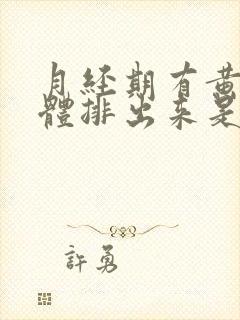 月经期有黄
體排出来是
許勇